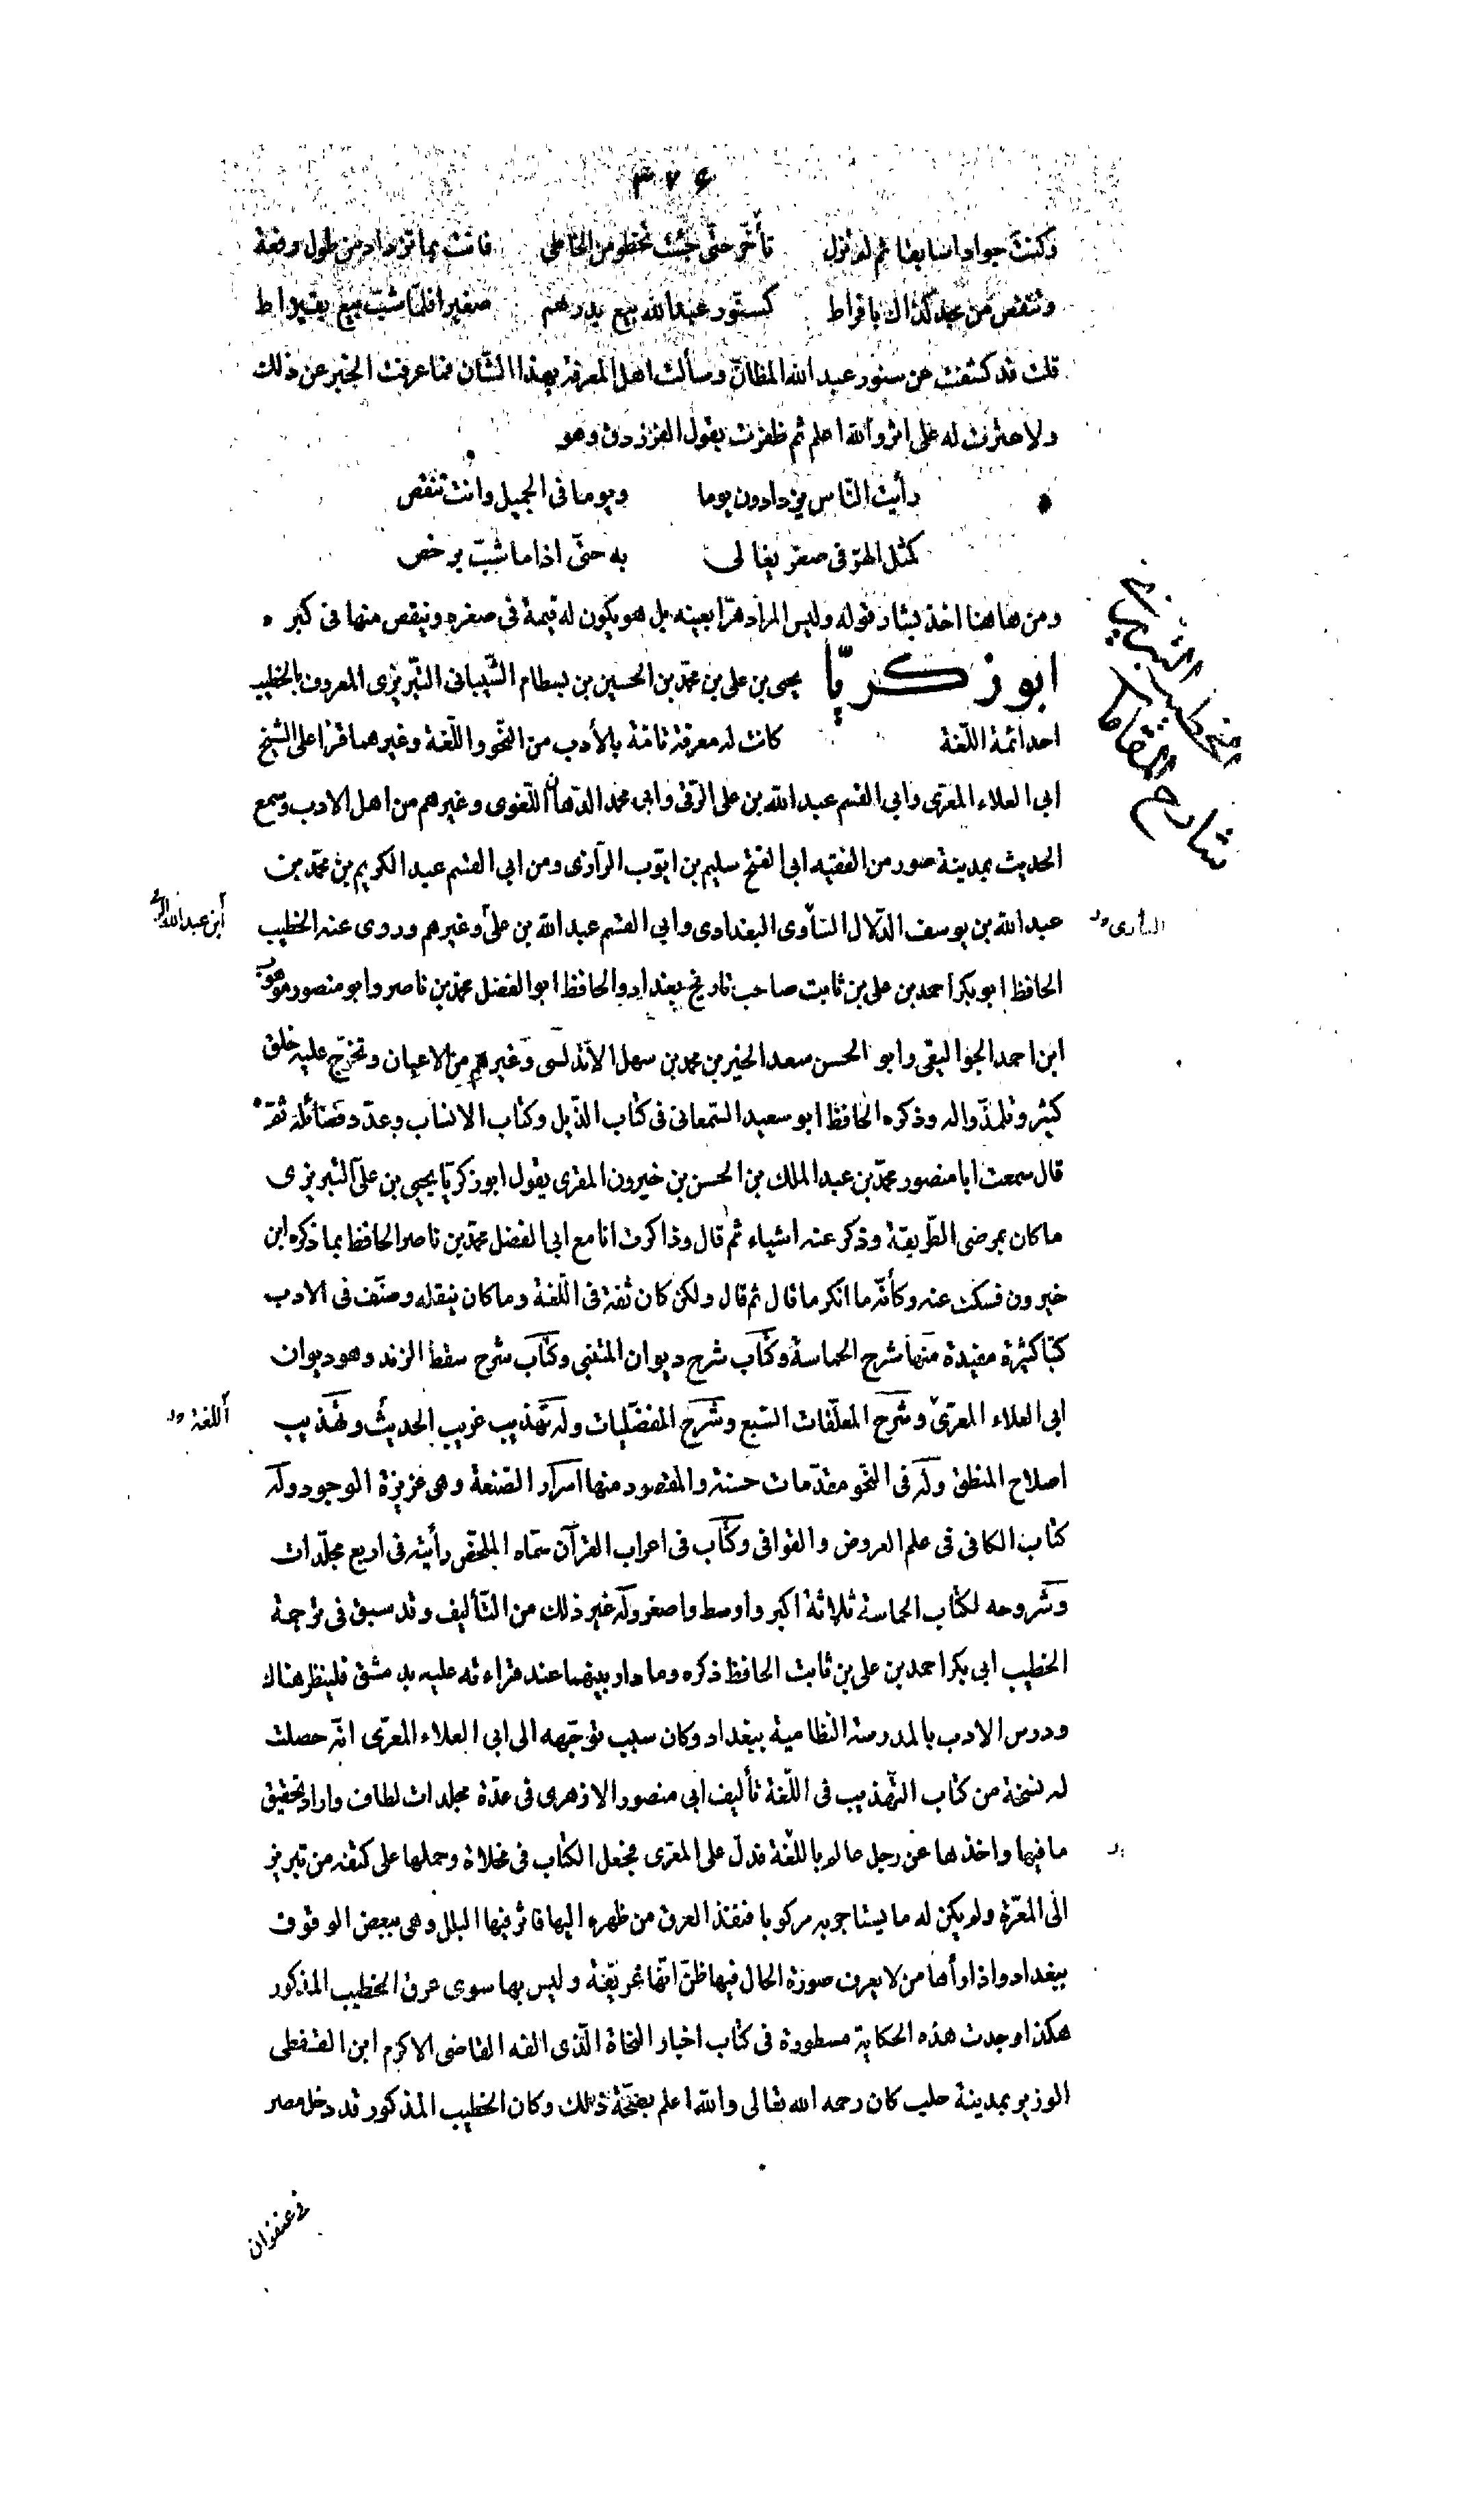 ٣٧٤
وكنت جوادا سابقا ثم لم تزل تأخّر حتّى جئت تخطو مع الخاطى فانت بما تزداد من طول رفعة
وتنقص من مجد كذاك بافراط كسنّور عبد الله بيع بدرهم صغيرا فلمّا شبّ بيع بقيراط
قلت قد كشفت عن سنور عبد الله المظانّ وسألت اهل المعرفة بهذا الشّان فما عرفت الخبر عن ذلك
ولا عثرت له على اثر والله اعلم ثم ظفرت بقول الفرزدق وهو
رأيت النّاس يزدادون يوما ويوما فى الجميل وانت تنقص
كمثل الهرّ فى صغر يغالى به حتّى اذا ما شبّ يرخص
ومن هاهنا اخذ بشار قوله وليس المراد هرّا بعينه بل هو يكون له قيمة فى صغره وينقص منها فى كبره
ابو زكريّا يحيى بن على بن محمّد بن الحسين بن بسطام الشّيبانى التّبريزى المعروف بالخطيب
احد ائمة اللّغة كانت له معرفة تامّة بالأدب من النّحو واللّغة وغيرهما قرا على الشيخ
ابى العلاء المعرّى وابى القسم عبد الله بن على الرّقى وابى محمد الدّهان اللّغوى وغيرهم من اهل الادب وسمع
الحديث بمدينة صور من الفقيه ابى الفتح سليم بن ايّوب الرّازى ومن ابى القسم عبد الكريم بن محمّد بن
عبد الله بن يوسف الدّلال السّاوى البغدادى وابى القسم عبد الله بن علىّ وغيرهم وروى عنه الخطيب
الحافظ ابو بكر احمد بن على بن ثابت صاحب تاريخ بغداد والحافظ ابو الفضل محمّد بن ناصر وابو منصور موهوب
ابن احمد الجواليقى وابو الحسن سعد الخير بن محمد بن سهل الاندلسى وغيرهم من الاعيان وتخرّج عليه خلق
كثير وتلمذوا له وذكره الحافظ ابو سعيد السّمعانى فى كتاب الذّيل وكتاب الانساب وعدّد فضائله ثمّ
قال سمعت ابا منصور محمّد بن عبد الملك بن الحسن بن خيرون المقرى يقول ابو زكريّا يحيى بن علىّ التبريزى
ما كان بمرضى الطّريقة وذكر عنه اشياء ثم قال وذاكرت انا مع ابى الفضل محمّد بن ناصر الحافظ بما ذكره ابن
خيرون فسكت عنه وكأنّه ما انكر ما قال ثم قال ولكن كان ثقة فى اللّغة وما كان ينقله وصنّف فى الادب
كتبا كثيرة مفيدة منها شرح الحماسة وكتاب شرح ديوان المتنبى وكتاب شرح سقط الزند وهو ديوان
ابى العلاء المعرّىّ وشرح المعلّقات السّبع وشرح المفضّليات وله تهذيب غريب الحديث وتهذيب
اصلاح المنطق وله فى النّحو مقدّمات حسنة والمقصود منها اسرار الصّنعة وهى عزيزة الوجود وله
كتاب الكافى فى علم العروض والقوافى وكتاب فى اعراب القرآن سمّاه الملخّص رأيته فى اربع مجلّدات
وشروحه لكتاب الحماسة ثلاثة اكبر واوسط واصغر وله غير ذلك من التّأليف وقد سبق فى ترجمة
الخطيب ابى بكر احمد بن على بن ثابت الحافظ ذكره وما دار بينهما عند قراءته عليه بدمشق فلينظر هناك
ودرس الادب بالمدرسة النظامية ببغداد وكان سبب توجّهه الى ابى العلاء المعرّى انّه حصلت
له نسخة من كتاب التّهذيب فى اللّغة تأليف ابى منصور الازهرى فى عدّة مجلدات لطاف واراد تحقيق
ما فيها واخذها عن رجل عالم باللّغة فدلّ على المعرّى فجعل الكتاب فى مخلاة وحملها على كتفه من تبريز
الى المعّرة ولم يكن له ما يستاجر به مركوبا فنفذ العرق من ظهره اليها فاثر فيها البلل وهى ببعض الوقوف
ببغداد واذا رأها من لا يعرف صورة الحال فيها ظنّ انّها غريقة وليس بها سوى عرق الخطيب المذكور
هكذا وجدت هذه الحكاية مسطورة فى كتاب اخبار النحاة الّذى الفه القاضى الاكرم ابن القفطى
الوزير بمدينة حلب كان رحمه الله تعالى والله اعلم بصحّة ذلك وكان الخطيب المذكور قد دخل مصر
فى عنفوان
الخطيب التبريزى
شارح
ابن عبد الله
اللغة